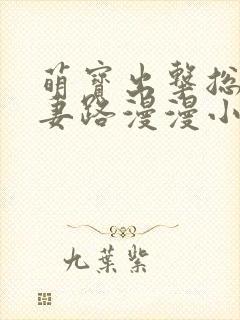 萌寶出擊總
妻路漫漫小
九葉紫